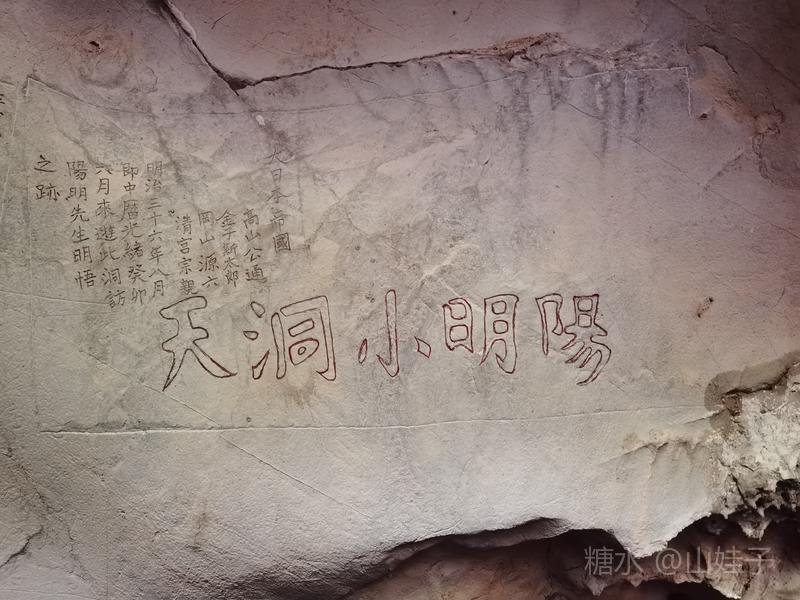 陽明小洞天
大日本帝國
高山公通
金子新太郎
岡山源六
清宮宗親
明治三十六年八月
即中曆光緒癸卯
六月來遊此洞訪
陽明先生明悟
之跡
糖水 @山娃子